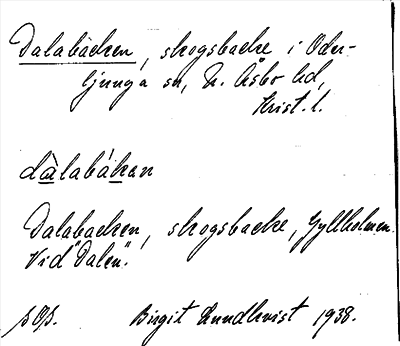 Dalabacken, skogsbacke i Oder-
ljunga sn, N. Åsbo hd,
Krist. l.
dàlabáken
Dalabacken, skogsbacke, Gyllholmen.
Vid "Dalen".
Birgit Lundkvist 1938.